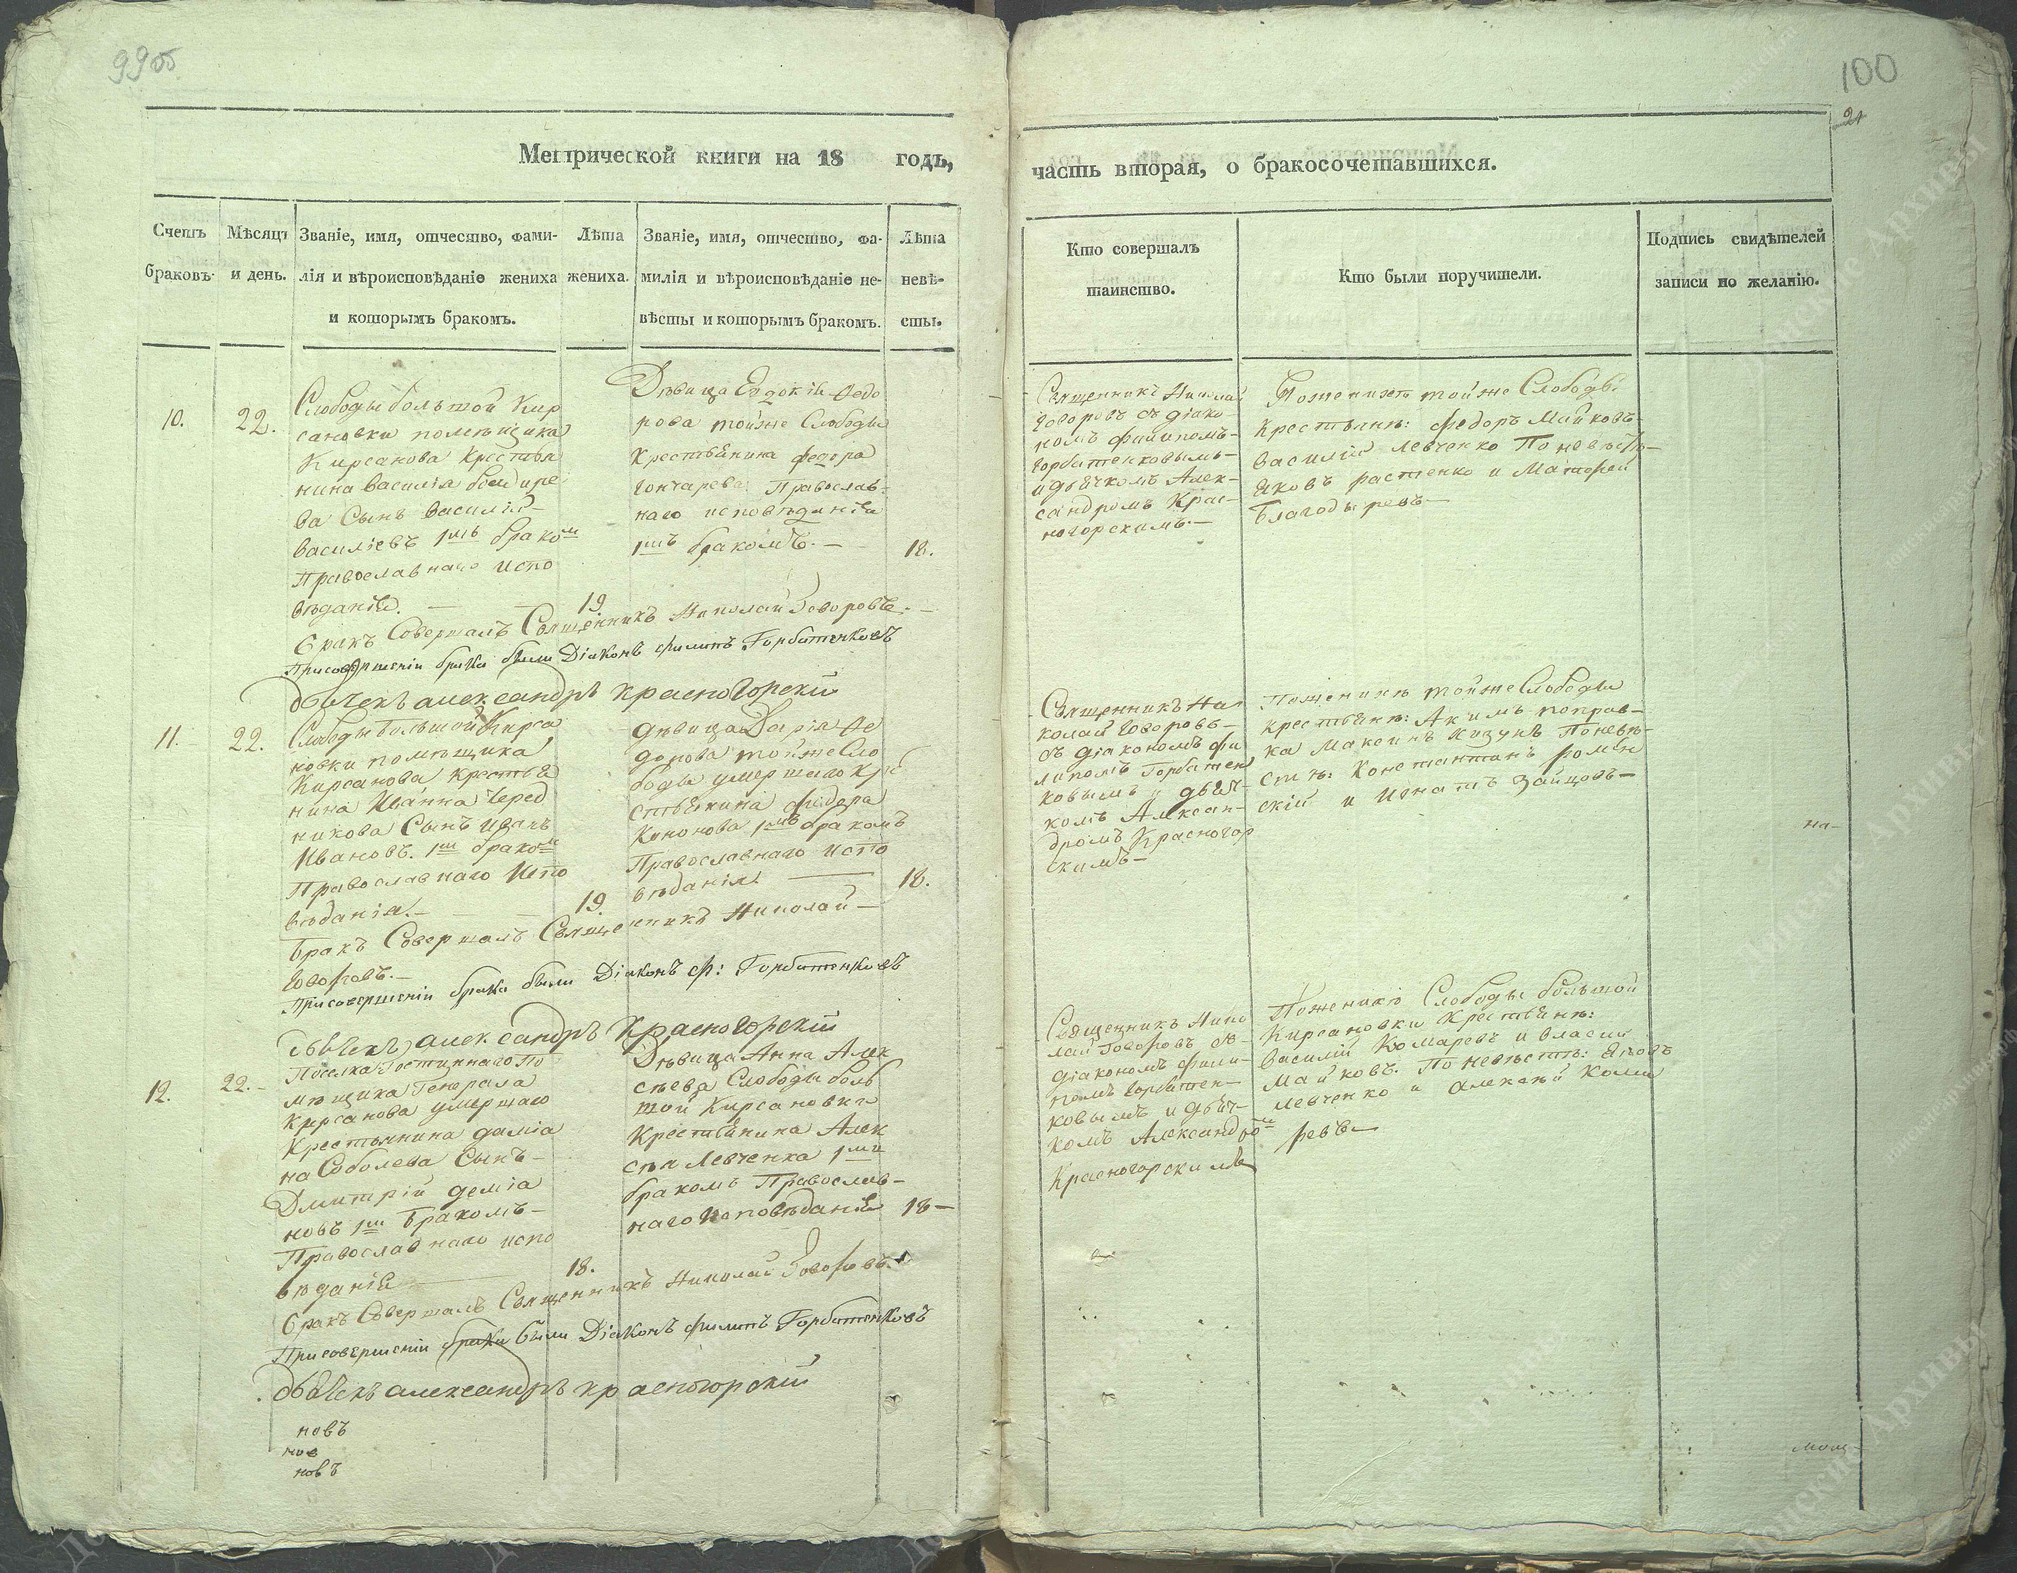 99об
100
21
Метрической книги на 18 годъ,
часть вторая, о бракосочетавшихся.
Счетъ браковъ.
Мѣсяцъ и день.
Званіе, имя, отчество, фами-
лія и вѣроисповѣданіе жениха
и которымъ бракомъ.
Лѣта
жениха.
Званіе, имя, отчество, фа-
милія и вѣроисповѣданіе не-
вѣсты и которымъ бракомъ.
Лѣта
невѣ-
сты.
Кто совершалъ
таинство.
Кто были поручители.
Подпись свидѣтелей
записи по желанію.
10.
22.
Слободы большой Кир
сановки помѣщика
Кирсанова Крестья
нина Василія бондаре
ва Сынъ Василій
Васильевъ 1мъ бракомъ
Православнаго испо
вѣданія. —
19.
Дѣвица Евдокія Федо
рова тойже Слободы
Крестьянина федора
Гончарева Православ-
наго исповѣданія
1мъ бракомъ. —
18.
Священникъ Николай
Говоровъ съ діако-
номъ филипомъ-
Горбатенковымъ-
и дьячкомъ Алек-
сандромъ Крас-
ногорскимъ.—
По женихѣ тойже Слободы
Крестьяне: федоръ Майковъ-
Василій Левченко По невѣстѣ-
Яковъ растенко и Матфей
Благодыревъ—
бракъ Совершалъ Священникъ Николай Говоровъ. —
При совершеніи брака были Діаконъ филипъ Горбатенковъ
дьячекъ александръ красногорскій
11.
22.
Слободы Большой Кирса
новки помѣщика
Кирсанова крестья
нина Иванна Черед
никова Сынъ Иванъ
Ивановъ. 1мъ бракомъ
Православнаго Испо
вѣданія. —
19.
дѣвица Дарія Фе
дорова тойже Сло
боды умершаго Кре
стьянина федора
Кононова 1мъ бракомъ
Православнаго испо
вѣданія —
18.
Священникъ Ни-
колай Говоровъ-
съ діакономъ фи
липомъ Горбатен
ковымъ и дьяч-
комъ Алексан-
дромъ Красногор
скимъ—
По женихѣ тойже Слободы
крестьяне: Акимъ поправ-
ка Максимъ Кизунъ По невѣ-
стѣ: Константинъ ромен
скій и Игнатъ Зайцовъ—
на-
Бракъ Совершалъ Священникъ Николай —
Говоровъ. —
При совершеніи брака были Діаконъ Ф: Горбатенковъ
дьячекъ александръ красногорскій
12.
22.-
Поселка Гостиннаго По
мѣщика Генерала
Кирсанова умершаго
Крестьянина даміа
на Соболева Сынъ-
Дмитрій деміа
новъ 1мъ Бракомъ-
Православнаго испо
вѣданія
18.
Дѣвица Анна Алек
сѣева Слободы боль
шой Кирсановки
Крестьянина Алек
сѣя Левченка 1мъ
бракомъ Православ-
наго исповѣданія
18—
Священникъ Нико
лай Говоровъ съ-
діакономъ фили-
помъ Горбатен-
ковымъ и дьяч-
комъ Александромъ
Красногорскимъ
По женихѣ Слободы большой
Кирсановки Крестьяне:
Василій Комаревъ и Власій
Майковъ. По невѣстѣ: Яковъ
Левченко и Алексѣй Кома
ревъ—
бракъ Совершалъ Священникъ Николай Говоровъ.
При совершеніи брака были Діаконъ филипъ Горбатенковъ
дьячекъ александръ красногорскій
новъ
нов
новъ